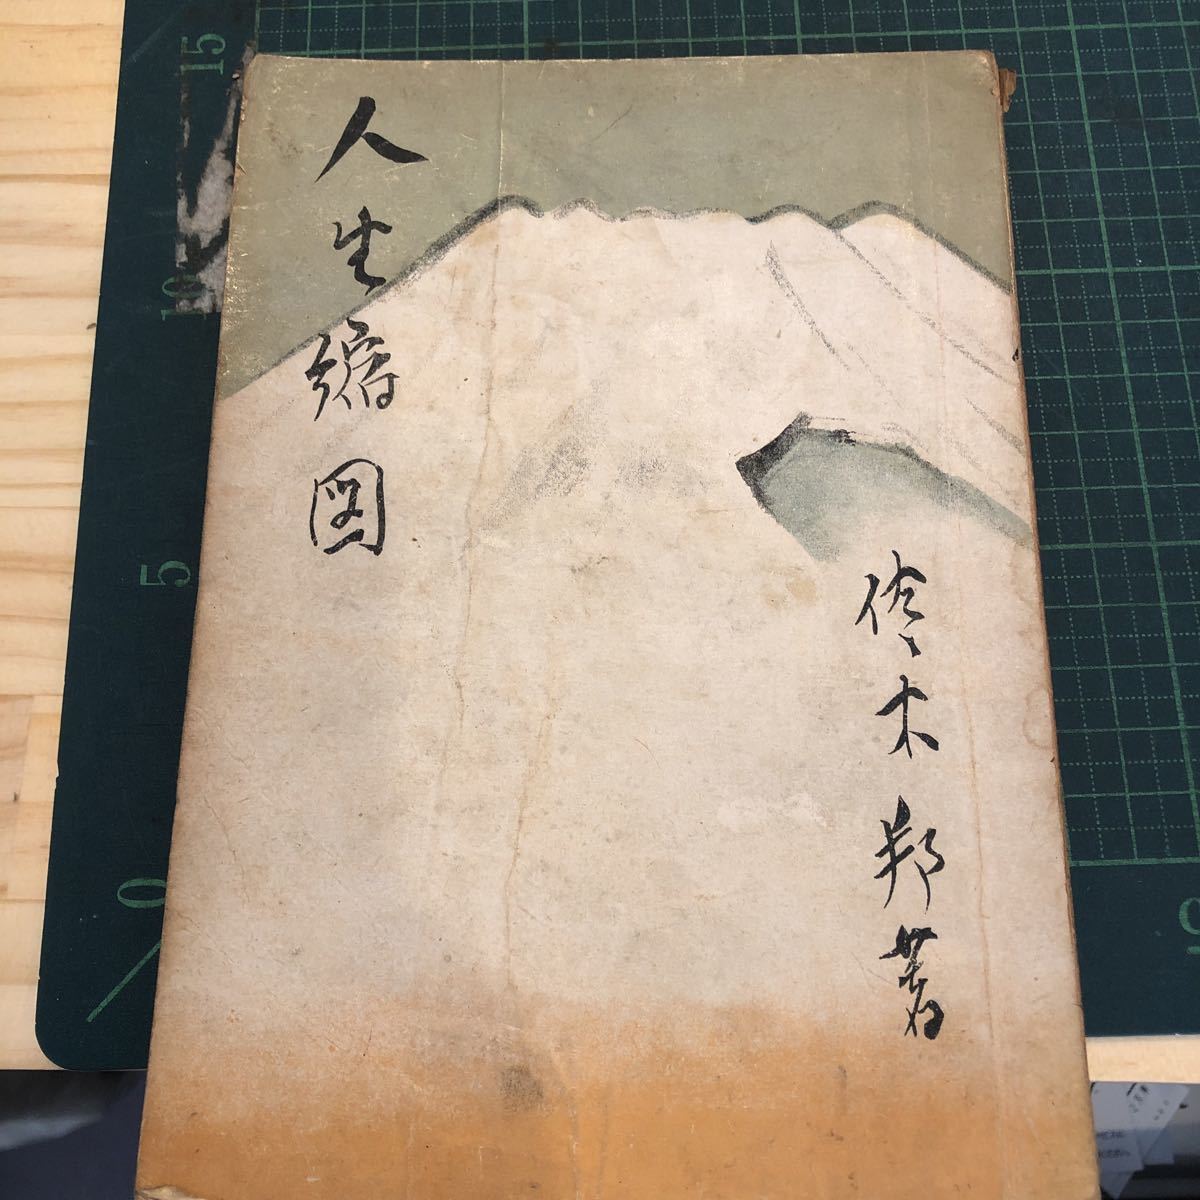 人生縮図
佐々木邦著
15
10
5
0
5